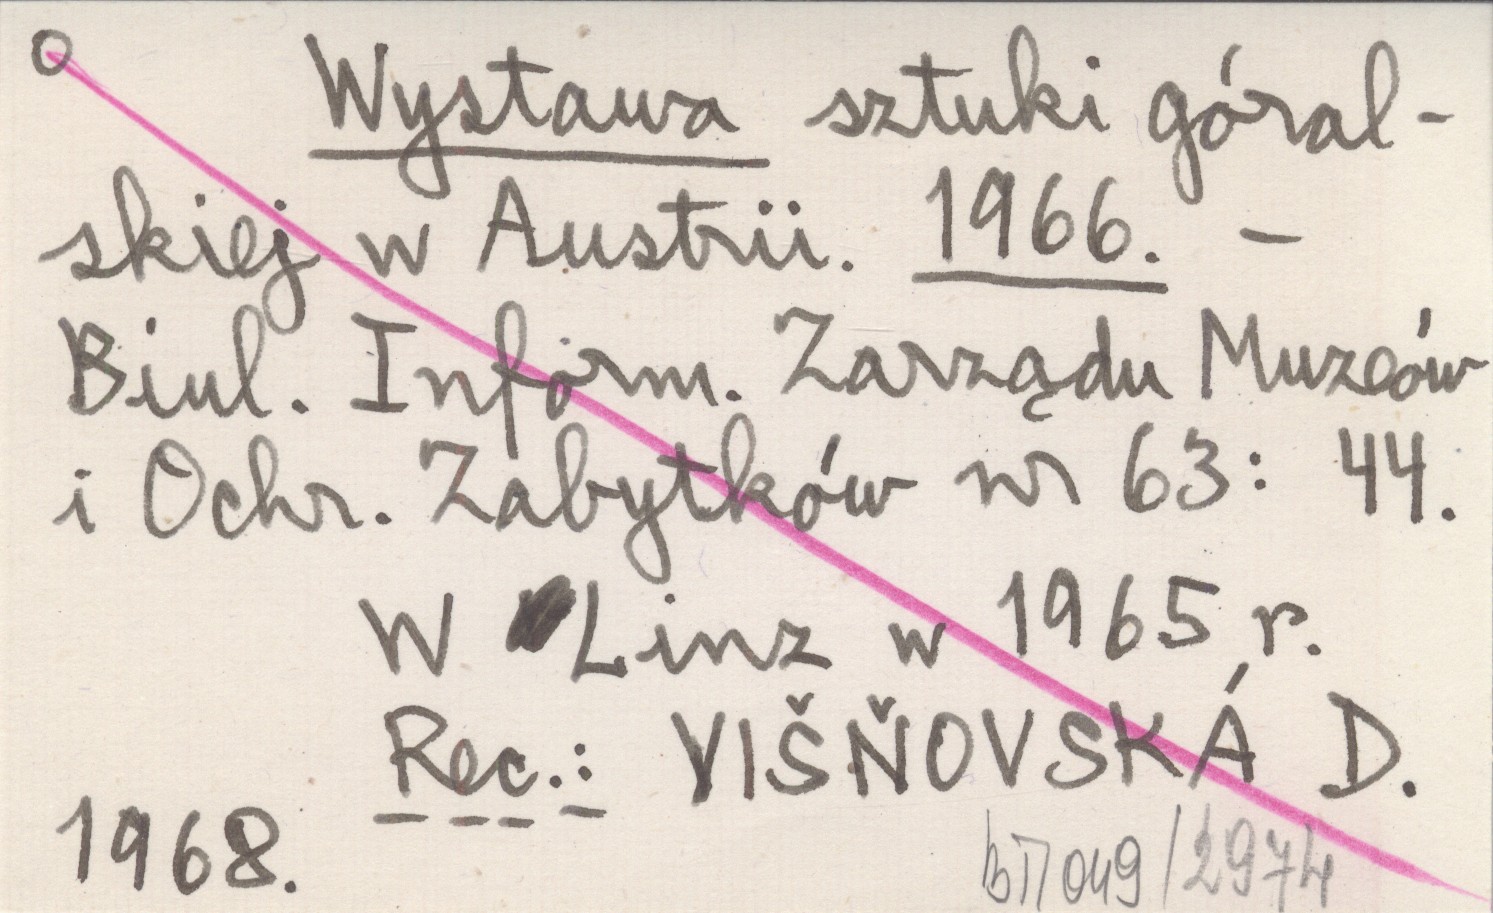 Wystawa sztuki góral-
skiej w Austrii. 1966. –
Biul. Inform. Zarządu Muzeów
i Ochr. Zabytków nr 63: 44.
W Linz w 1965 r.
Rec.: VIŠŇOVSKÁ D.
1968.
049/2974